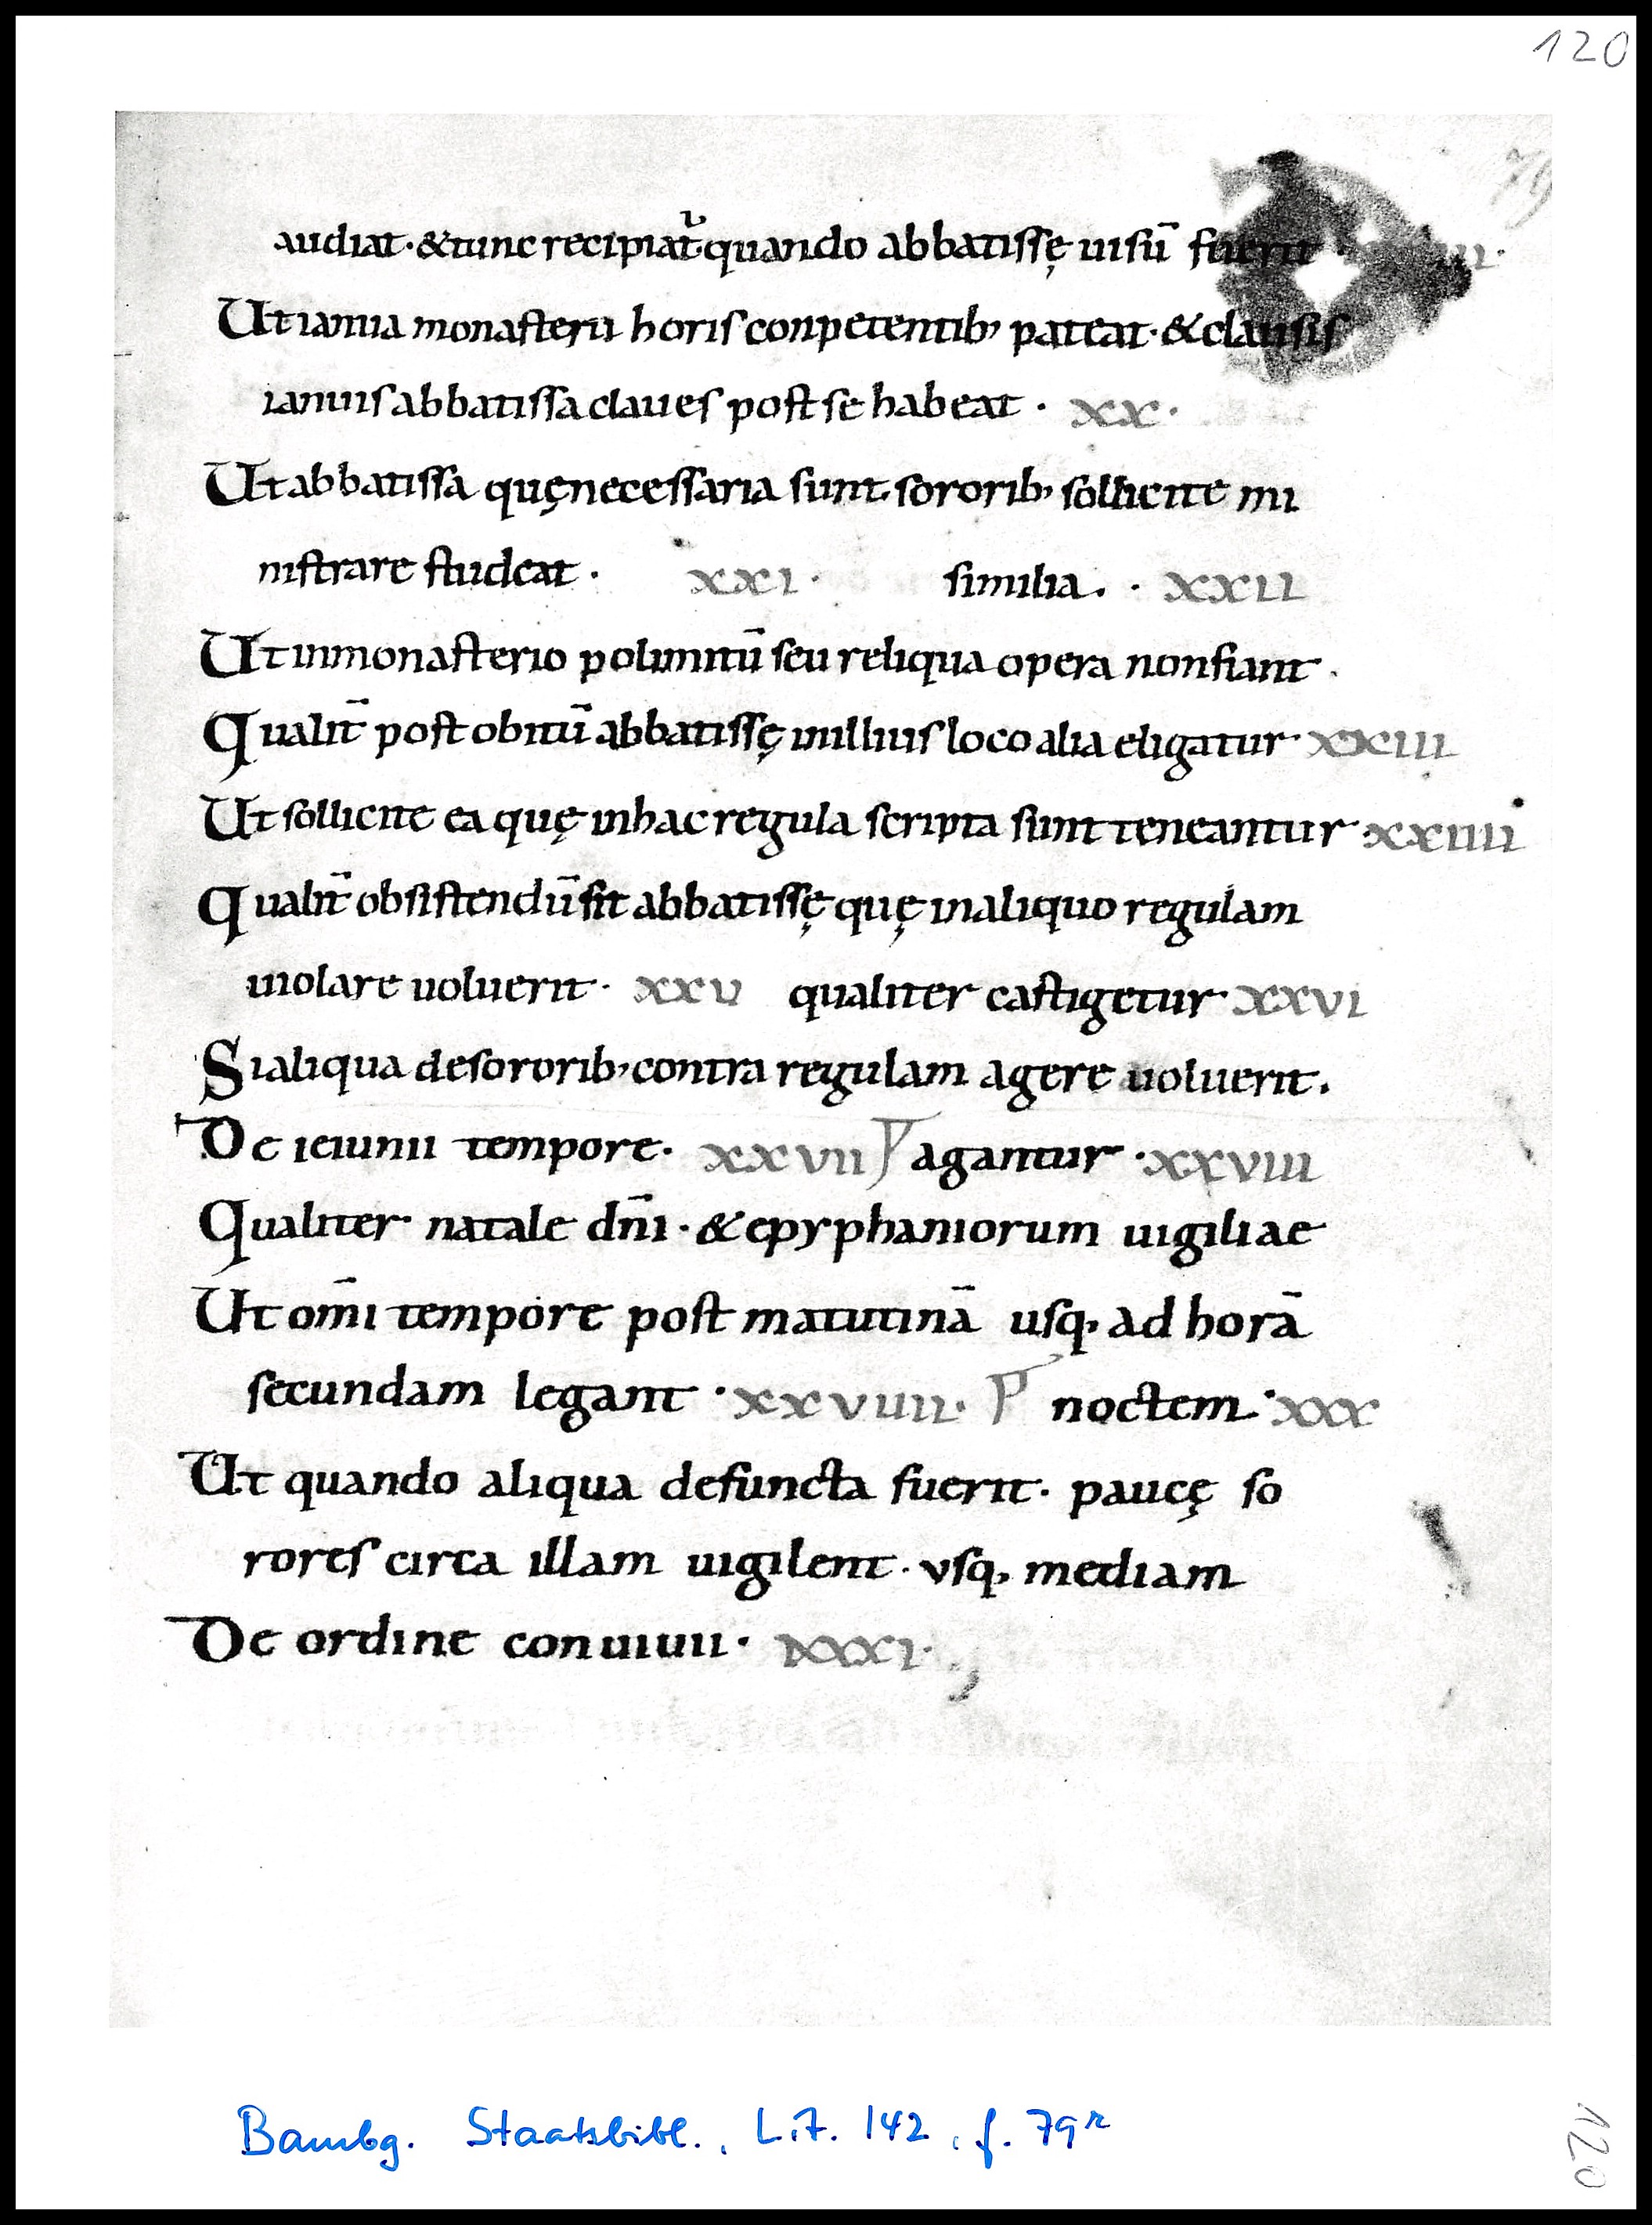 120
79
audiat · & tunc recipiat᷑ quando abbatissę uisū fuerit
Ut ianua monasterii horis conpetentib; pateat · & clausis
ianuis abbatissa claues post se habeat · xx ·
Ut abbatissa quę necessaria sunt sororib; sollicite mi
nistrare studeat · xxi · similia . · xxii
Ut in monasterio polimitū seu reliqua opera non fiant .
Qualit̄ post obitū abbatissę in illius loco alia eligatur · xxiii
Ut sollicite ea quę in hac regula scripta sunt teneantur · xxiiii
Qualit̄ obsistendū sit abbatissę quę in aliquo regulam
uiolare uoluerit · xxv qualiter castigetur · xxvi
Si aliqua de sororib; contra regulam agere uoluerit .
De ieiunii tempore . xxvii agantur · xxviii
Qualiter natale dn̄i · & epyphaniorum uigiliae
Ut om̄i tempore post matutinā usq; ad horā
secundam legant · xxviiii · noctem · xxx
Ut quando aliqua defuncta fuerit · paucę so
rores circa illam uigilent · vsq; mediam
De ordine conuiuii · xxxi ·
Bambg. Staatsbibl., Lit. 142, f. 79r
120